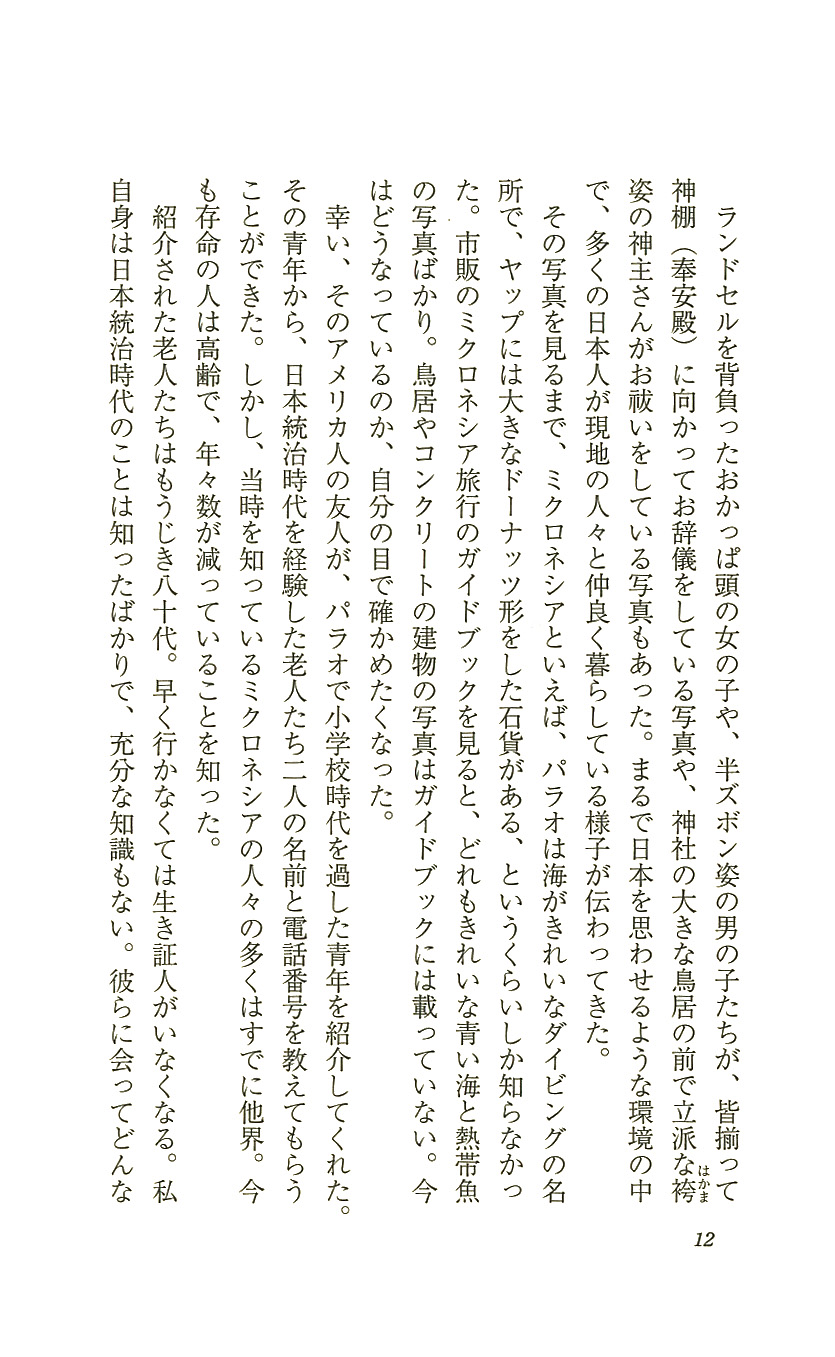 ランドセルを背負ったおかっぱ頭の女の子や、半ズボン姿の男の子たちが、皆揃って
神棚（奉安殿）に向かってお辞儀をしている写真や、神社の大きな鳥居の前で立派な袴
はかま
姿の神主さんがお祓いをしている写真もあった。まるで日本を思わせるような環境の中
で、多くの日本人が現地の人々と仲良く暮らしている様子が伝わってきた。
　その写真を見るまで、ミクロネシアといえば、パラオは海がきれいなダイビングの名
所で、ヤップには大きなドーナッツ形をした石貨がある、というくらいしか知らなかっ
た。市販のミクロネシア旅行のガイドブックを見ると、どれもきれいな青い海と熱帯魚
の写真ばかり。鳥居やコンクリートの建物の写真はガイドブックには載っていない。今
はどうなっているのか、自分の目で確かめたくなった。
　幸い、そのアメリカ人の友人が、パラオで小学校時代を過した青年を紹介してくれた。
その青年から、日本統治時代を経験した老人たち二人の名前と電話番号を教えてもらう
ことができた。しかし、当時を知っているミクロネシアの人々の多くはすでに他界。今
も存命の人は高齢で、年々数が減っていることを知った。
　紹介された老人たちはもうじき八十代。早く行かなくては生き証人がいなくなる。私
自身は日本統治時代のことは知ったばかりで、充分な知識もない。彼らに会ってどんな
12